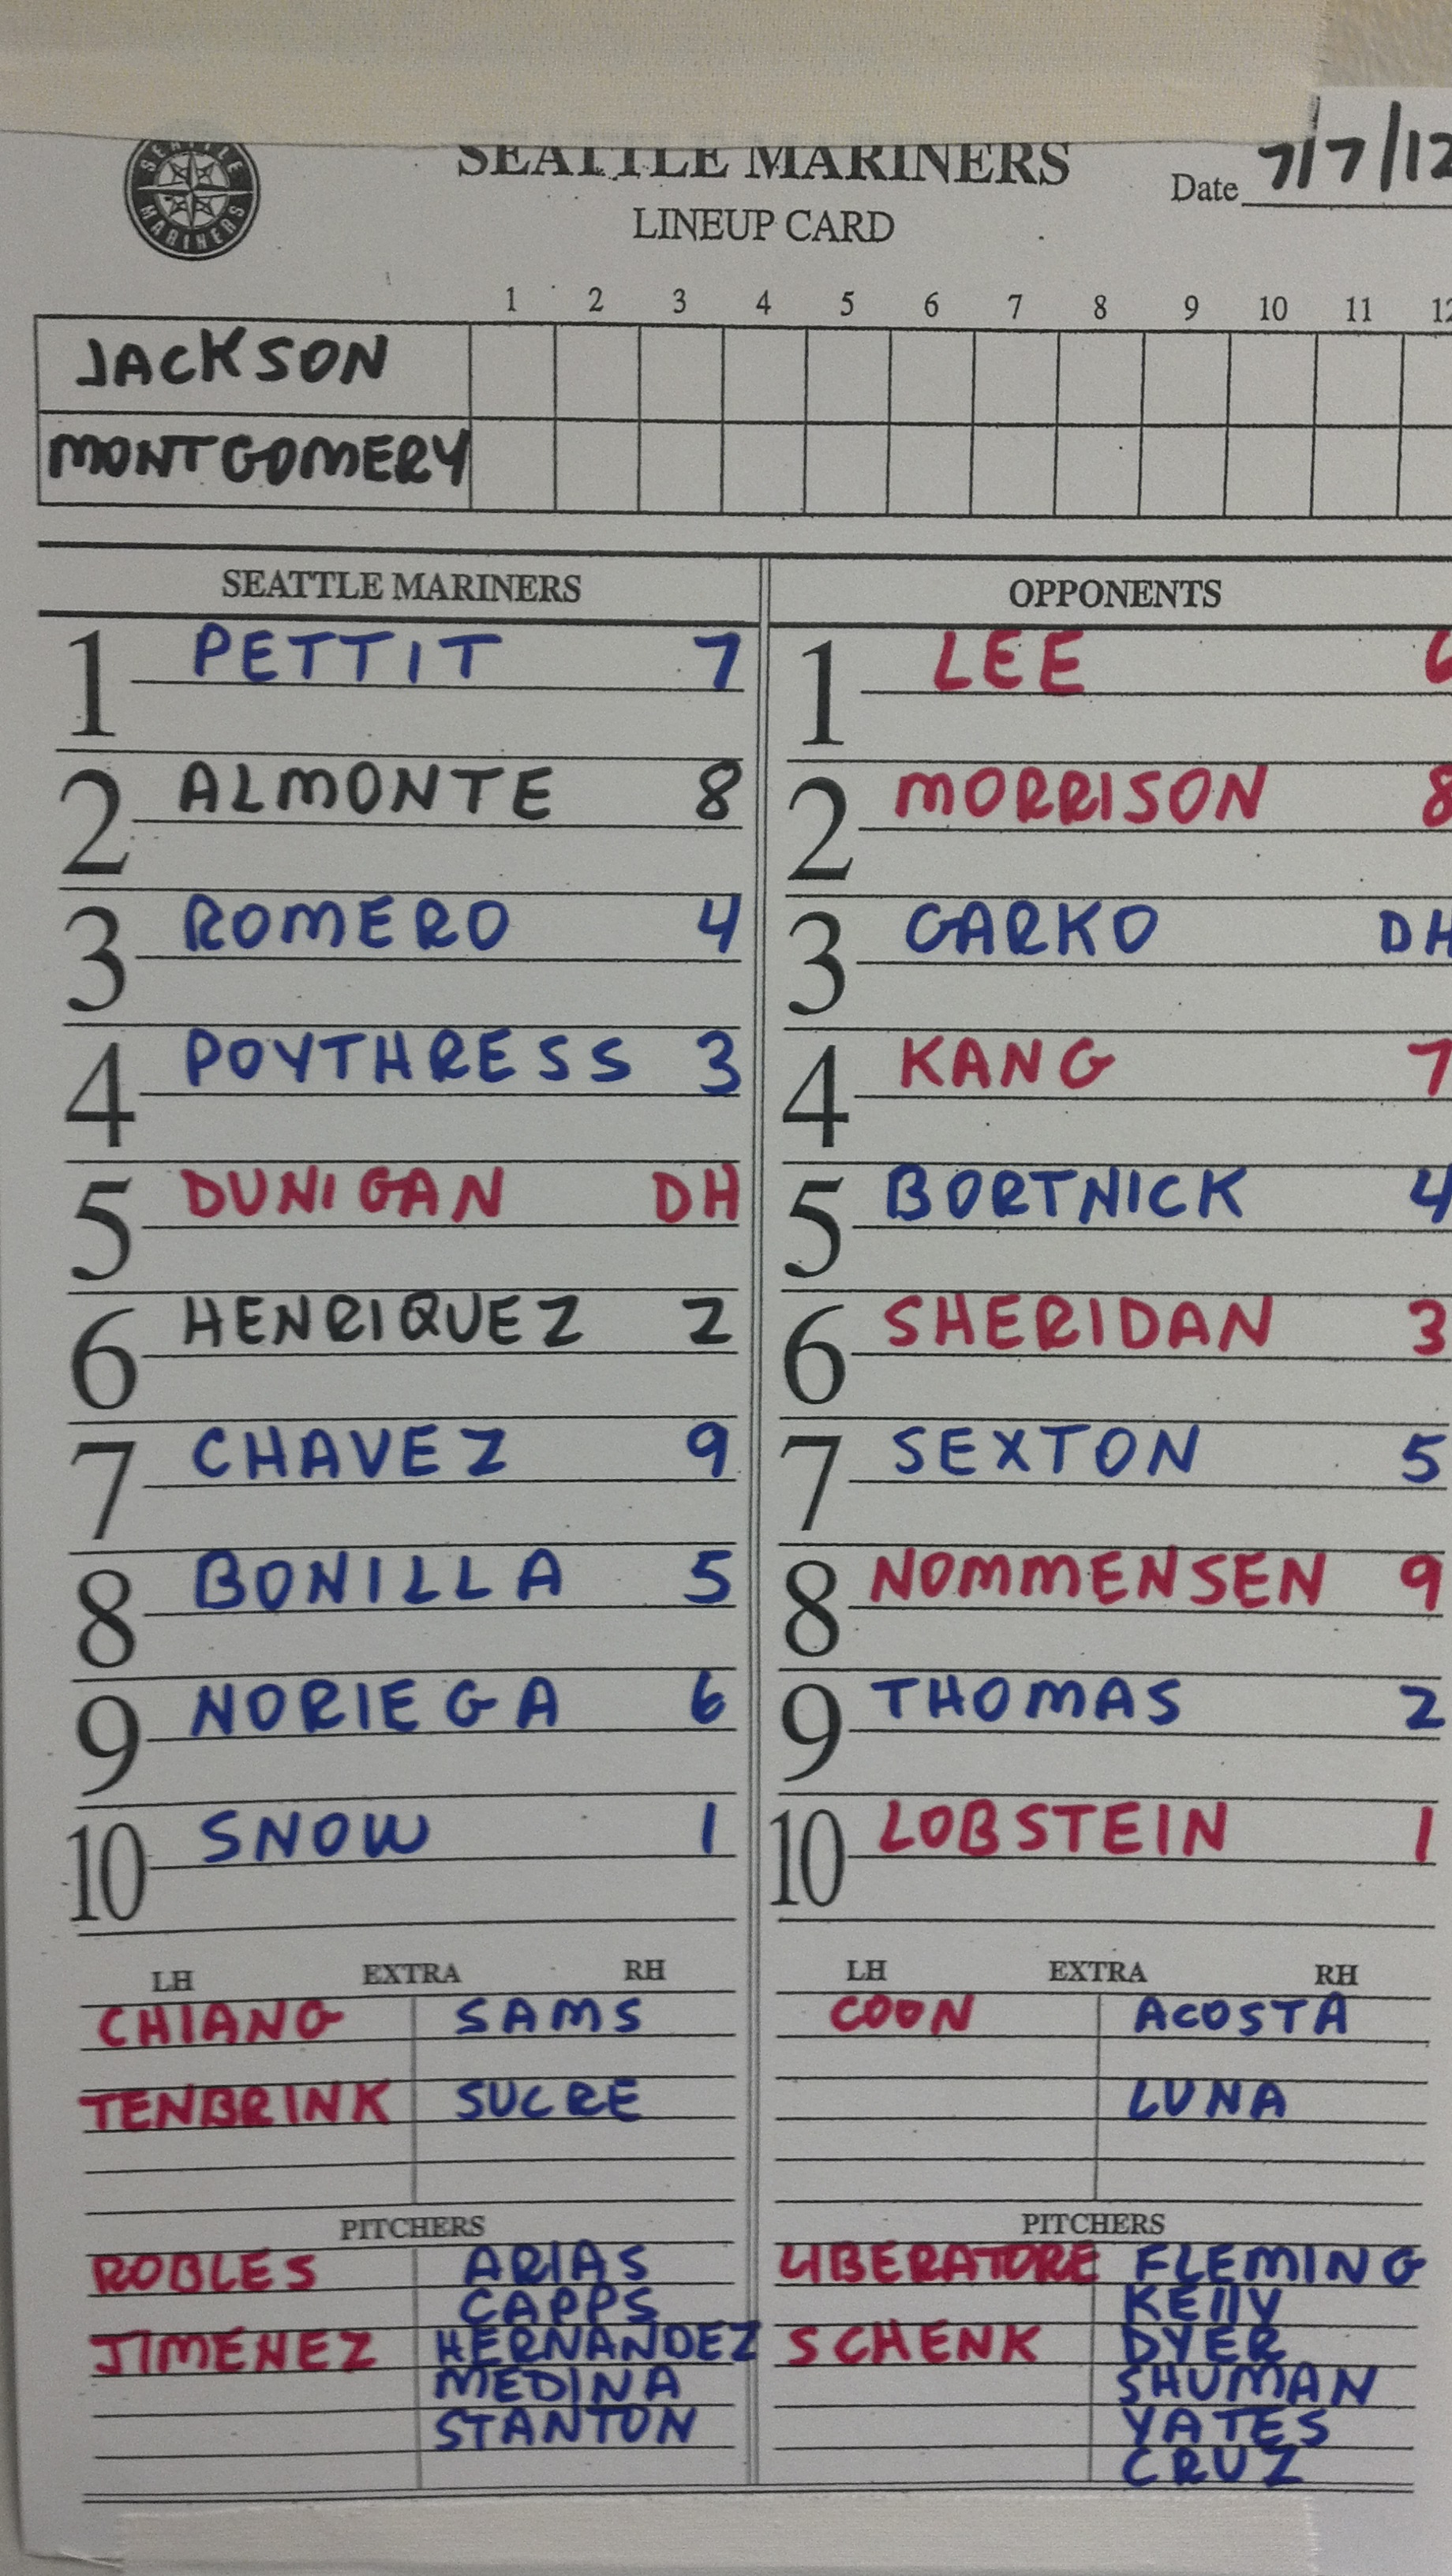 SEATTLE MARINERS
SEATTLE MARINERS
LINEUP CARD
Date 7/7/12
1 2 3 4 5 6 7 8 9 10 11 12
JACKSON
MONTGOMERY
SEATTLE MARINERS
1 PETTIT 7
2 ALMONTE 8
3 ROMERO 4
4 POYTHRESS 3
5 DUNIGAN DH
6 HENRIQUEZ 2
7 CHAVEZ 9
8 BONILLA 5
9 NORIEGA 6
10 SNOW 1
LH EXTRA RH
CHIANG SAMS
TENBRINK SUCRE
PITCHERS
ROBLES ARIAS
CAPPS
JIMENEZ HERNANDEZ
MEDINA
STANTON
OPPONENTS
1 LEE 6
2 MORRISON 8
3 GARKO DH
4 KANG 7
5 BORTNICK 4
6 SHERIDAN 3
7 SEXTON 5
8 NOMMENSEN 9
9 THOMAS 2
10 LOBSTEIN 1
LH EXTRA RH
COON ACOSTA
LUNA
PITCHERS
LIBERATORE FLEMING
KELLY
SCHENK DYER
SHUMAN
YATES
CRUZ